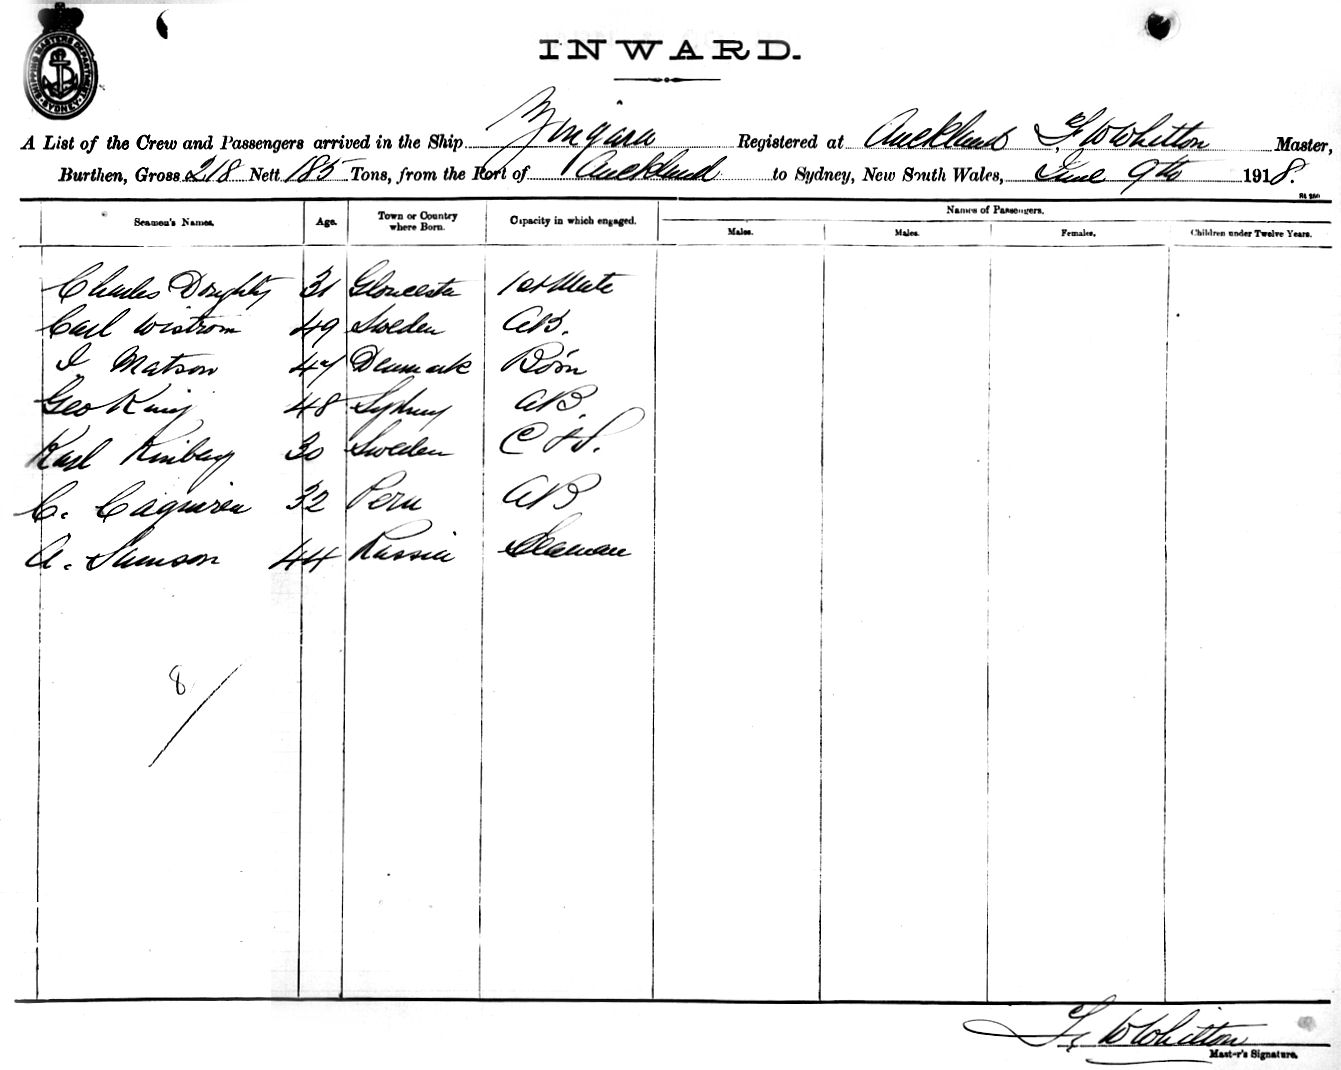 SHIPPING MASTERS DEPARTMENT SYDNEY
INWARD.
A List of the Crew and Passengers arrived in the Ship Zingara Registered at Auckland F. W Whitton Master,
Burthen, Gross 218 Nett 185 Tons, from the Port of Auckland to Sydney, New South Wales, June 9th 1918.
Seamen's Names. Age. Town or Country where Born. Capacity in which engaged. Names of Passengers.
Males. Males. Females. Children under Twelve Years.
Charles Doughty 31 Gloucester 1st Mate
Carl Wistrom 49 Sweden AB.
I Matson 47 Denmark Bosn
Geo King 48 Sydney AB.
Karl Kinberg 30 Sweden C & S.
C. 32 Peru AB
A. Samson 44 Russia Seaman
8
F. W Whitton
Master's Signature.